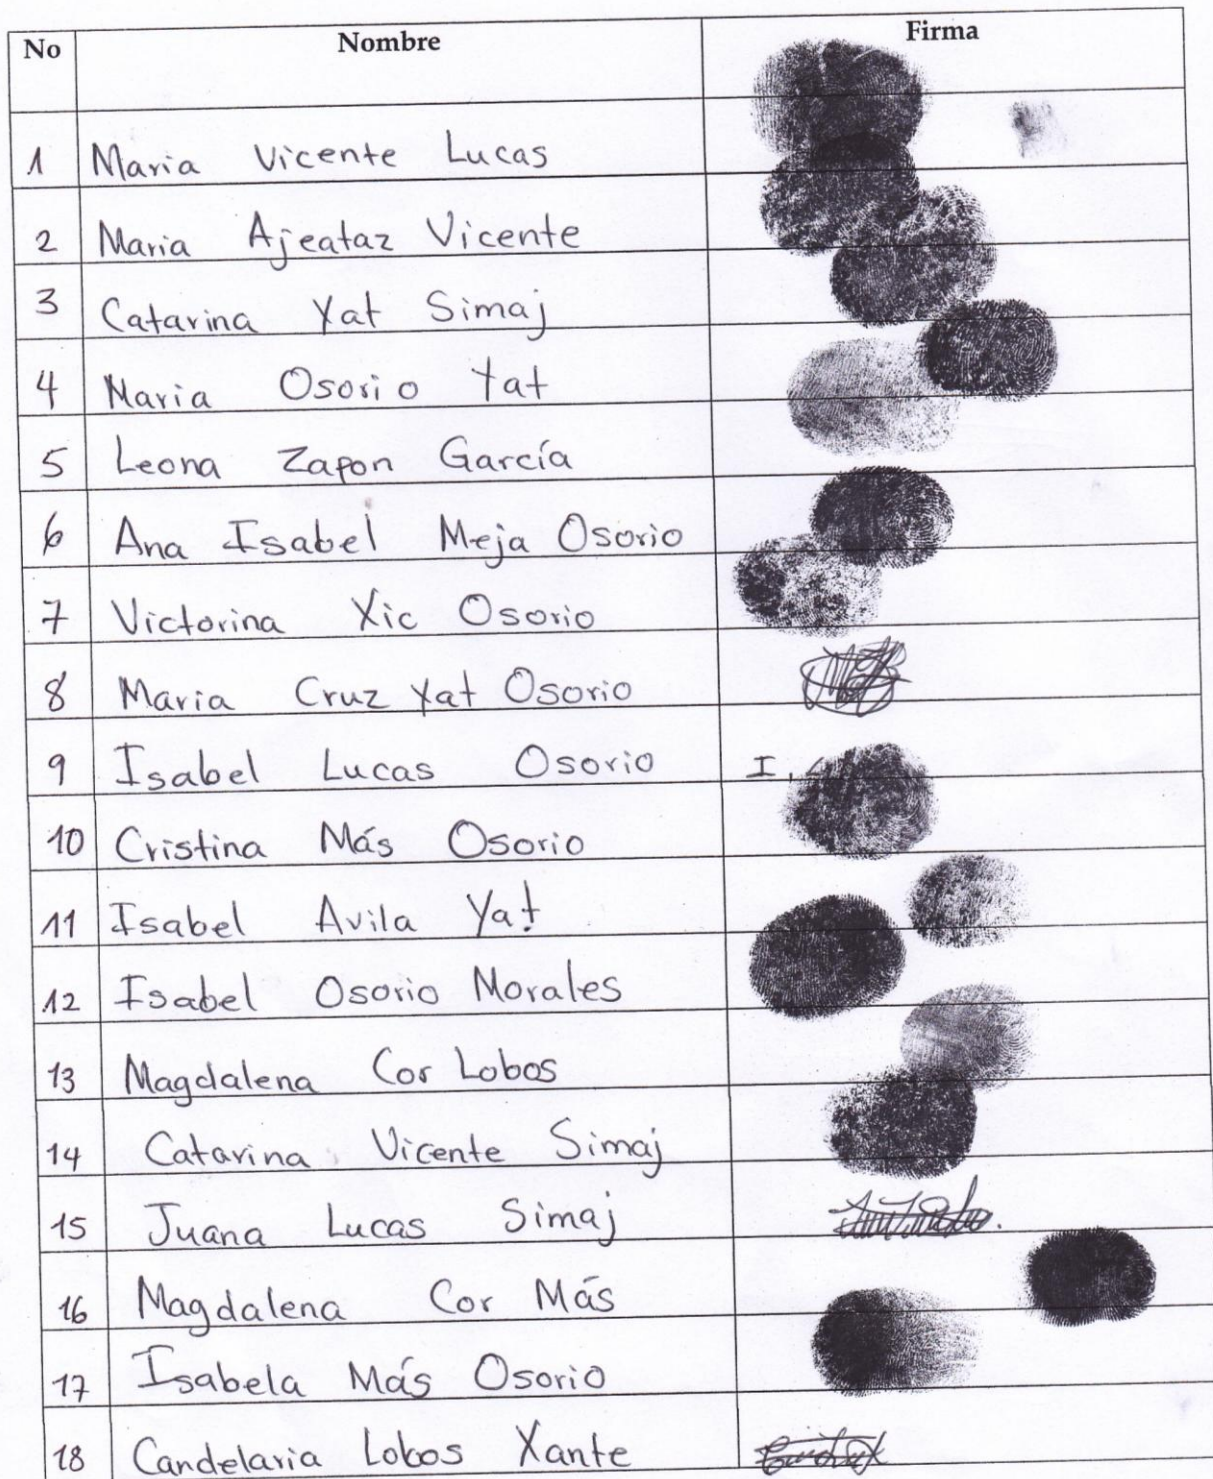 No Nombre Firma
1 Maria Vicente Lucas
2 Maria Ajeataz Vicente
3 Catarina Yat Simaj
4 Maria Osorio Yat
5 Leona Zapon García
6 Ana Isabel Meja Osorio
7 Victorina Xic Osorio
8 Maria Cruz Yat Osorio
9 Isabel Lucas Osorio I.
10 Cristina Más Osorio
11 Isabel Avila Yat
12 Isabel Osorio Morales
13 Magdalena Cor Lobos
14 Catarina Vicente Simaj
15 Juana Lucas Simaj
16 Magdalena Cor Más
17 Isabela Más Osorio
18 Candelaria Lobos Xante